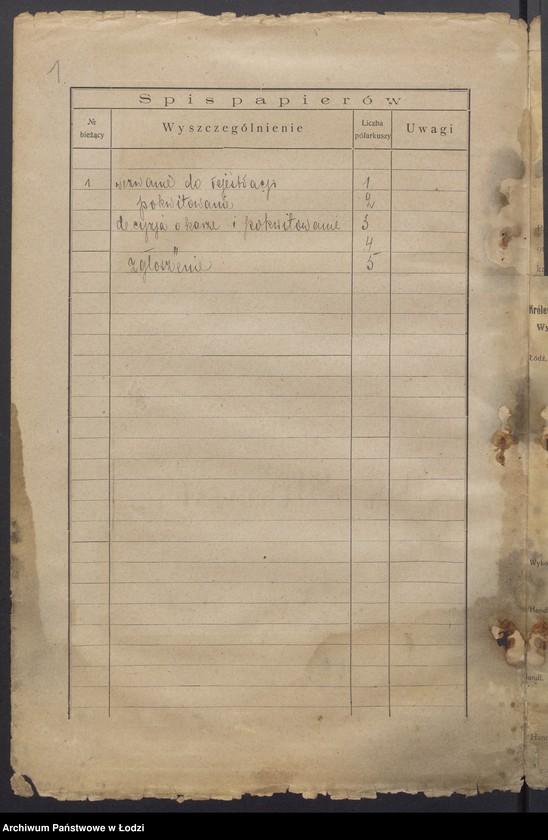 1.
Spis papierów
№ bieżący Wyszczególnienie Liczba półarkuszy Uwagi
1 wezwanie do rejestracji 1
pokwitowanie 2
decyzja o karze i pokwitowanie 3
" 4
zgłoszenie 5
Królew
Wy
Łódź,
Wyko
Hand
handl.
Han
Archiwum Państwowe w Łodzi